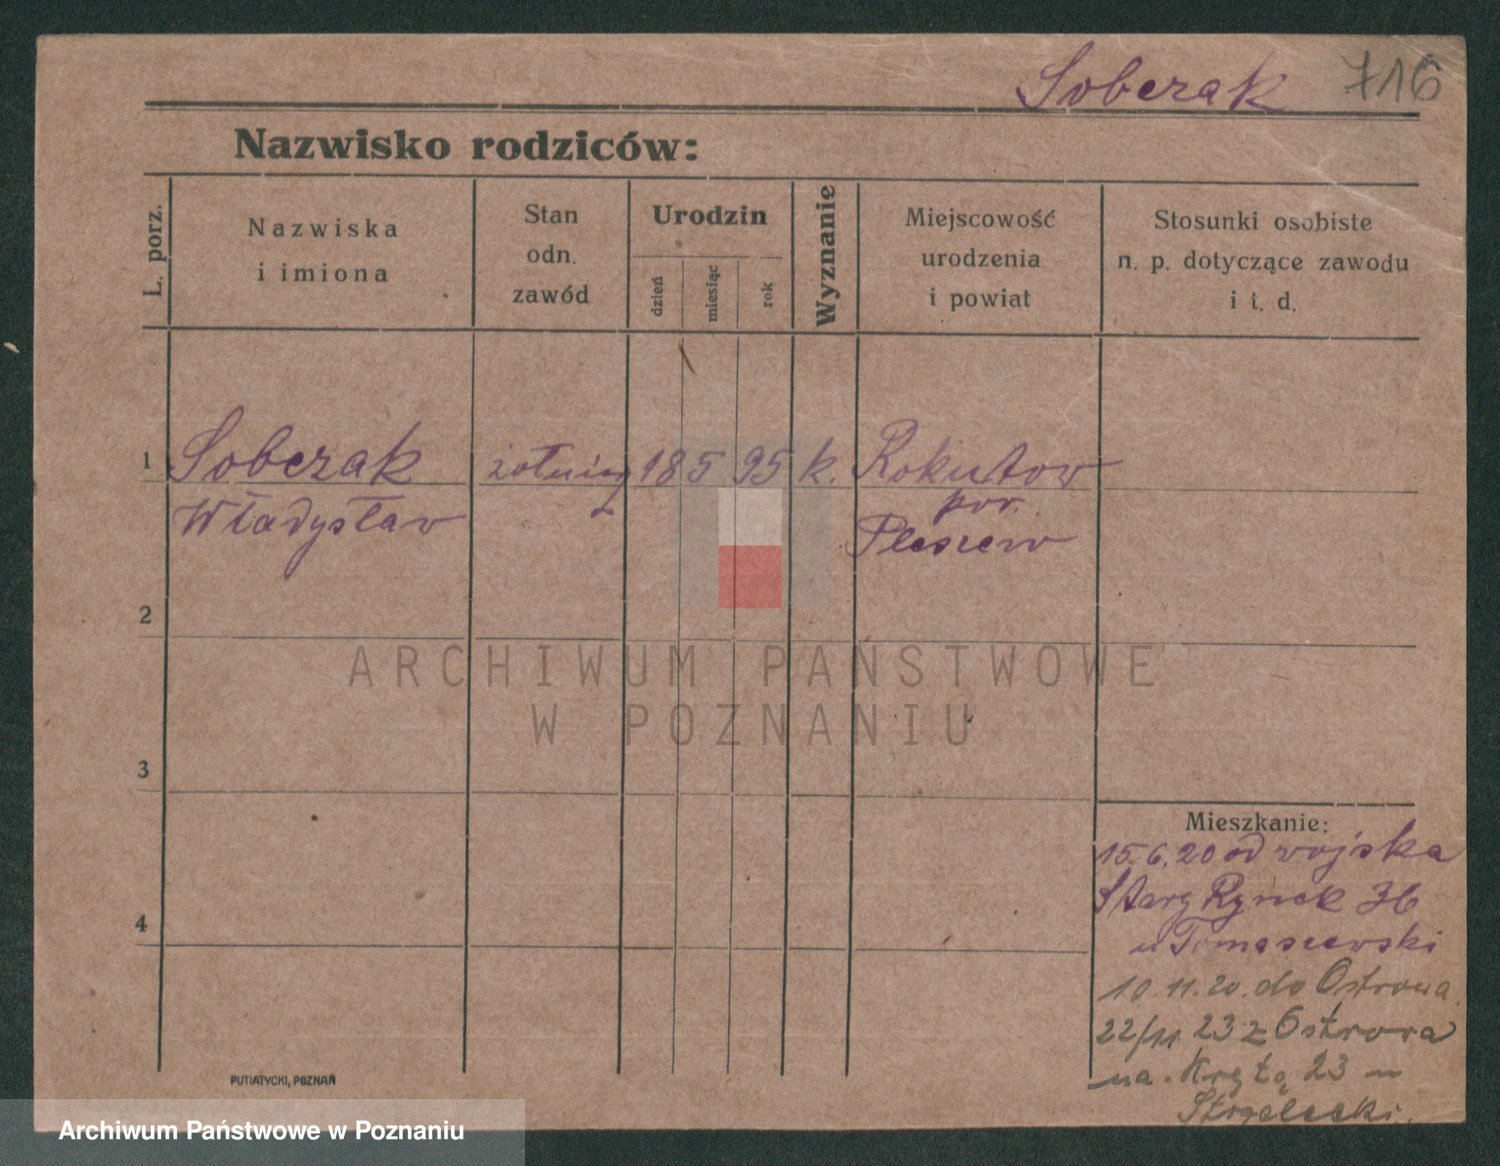 Sobczak 716
Nazwisko rodziców:
L. porz.
Nazwiska
i imiona
Stan
odn.
zawód
Urodzin
dzień
miesiąc
rok
Wyznanie
Miejscowość
urodzenia
i powiat
Stosunki osobiste
n. p. dotyczące zawodu
i t. d.
1 Sobczak żołnierz 18 5 95 k. Rokutow
Władysław pow.
Pleszew
2
3
4
Mieszkanie:
15.6.20 od wojska
Stary Rynek 36
u Tomaszewski
10.11.20. do Ostrowa
22/11 23 z Ostrowa
na Krętą 23
PUTIATYCKI, POZNAŃ
ARCHIWUM PAŃSTWOWE
W POZNANIU
Archiwum Państwowe w Poznaniu